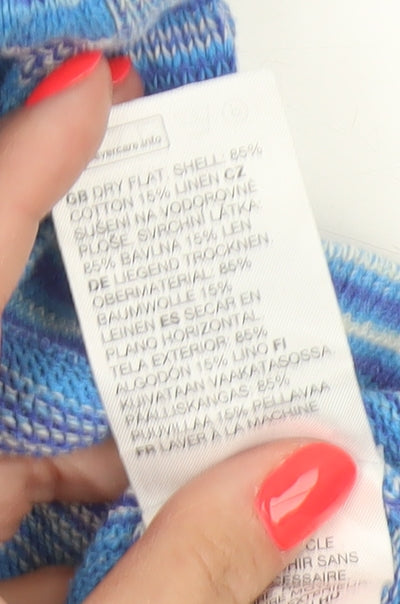 evercare.info
GB DRY FLAT. SHELL: 85%
COTTON 15% LINEN CZ
SUŠENÍ NA VODOROVNÉ
PLOŠE. SVRCHNÍ LÁTKA:
85% BAVLNA 15% LEN
DE LIEGEND TROCKNEN.
OBERMATERIAL: 85%
BAUMWOLLE 15%
LEINEN ES SECAR EN
PLANO HORIZONTAL
TELA EXTERIOR: 85%
ALGODÓN 15% LINO FI
KUIVATAAN VAAKATASOSSA
PÄÄLLISKANGAS: 85%
PUUVILLAA 15% PELLAVAA
FR LAVER À LA MACHINE
CLE
HIR SANS
CESSAIRE.